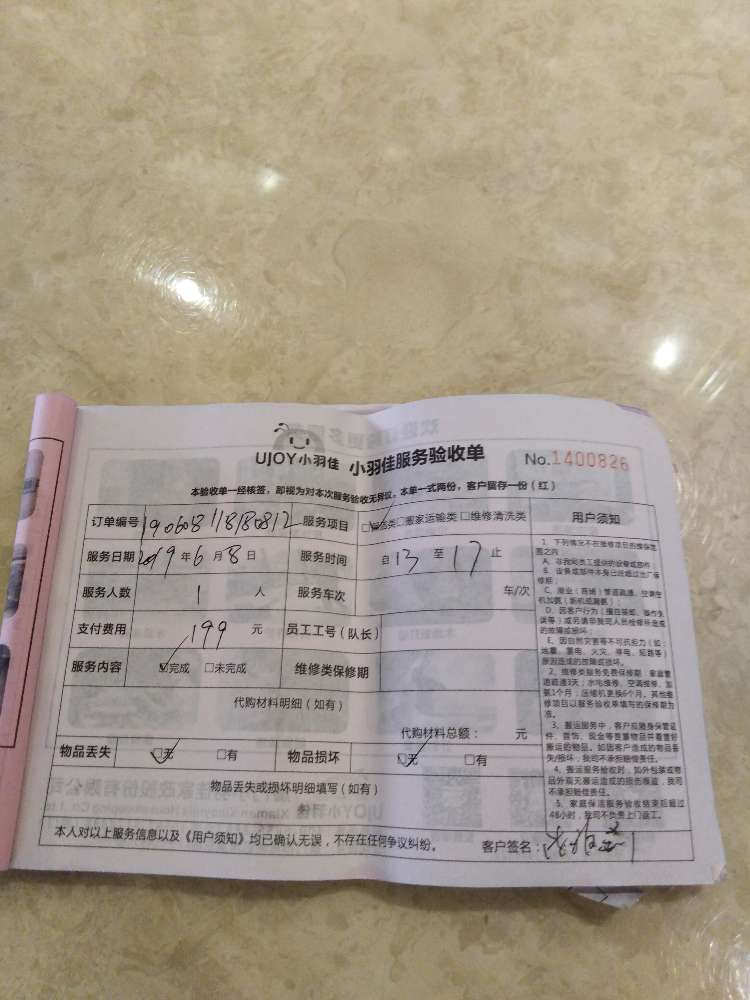 UJOY小羽佳 小羽佳服务验收单 No.1400826
本验收单一经核签，即视为对本次服务验收无异议，本单一式两份，客户留存一份（红）
订单编号 190608118180812 服务项目 □保洁类□搬家运输类 □维修清洗类 用户须知
服务日期 2019 年 6 月 8 日 服务时间 自 13 至 17 止
服务人数 1 人 服务车次 车/次
支付费用 199 元 员工工号（队长）
服务内容 ☑完成 □未完成 维修类保修期
代购材料明细（如有）
代购材料总额： 元
物品丢失 ☑无 □有 物品损坏 ☑无 □有
物品丢失或损坏明细填写（如有）
本人对以上服务信息以及《用户须知》均已确认无误，不存在任何争议纠纷。 客户签名：
1、下列情况不在维修项目的维保范
围之内：
A、非我司员工提供的设备或部件；
B、设备或部件本身已经超过出厂保
修期；
C、商业（商铺）管道疏通、空调在
机加氨（新机或漏氨）；
D、因客户行为（擅自装卸、操作失
误等）或另请非我司人员检修所造成
的故障或损坏；
E、因自然灾害等不可抗拒力（如：
地震、雷电、火灾、停电、短路等）
原因造成的故障或损坏。
2、维修类服务免费保修期：家庭管
道疏通3天；水电维修、空调维修、加
氨1个月；压缩机更换6个月。其他维
修项目以服务验收单填写的保修期为
准。
3、搬运服务中，客户应随身保管证
件、首饰、现金等贵重物品并看管好
搬运的物品。如因客户造成的物品丢
失/损坏，我司不承担赔偿责任。
4、搬运服务验收时，如外包装或物
品外观无搬运造成的损伤痕迹，我司
不承担赔偿责任。
5、家庭保洁服务验收结束后超过
48小时，我司不负责上门返工。